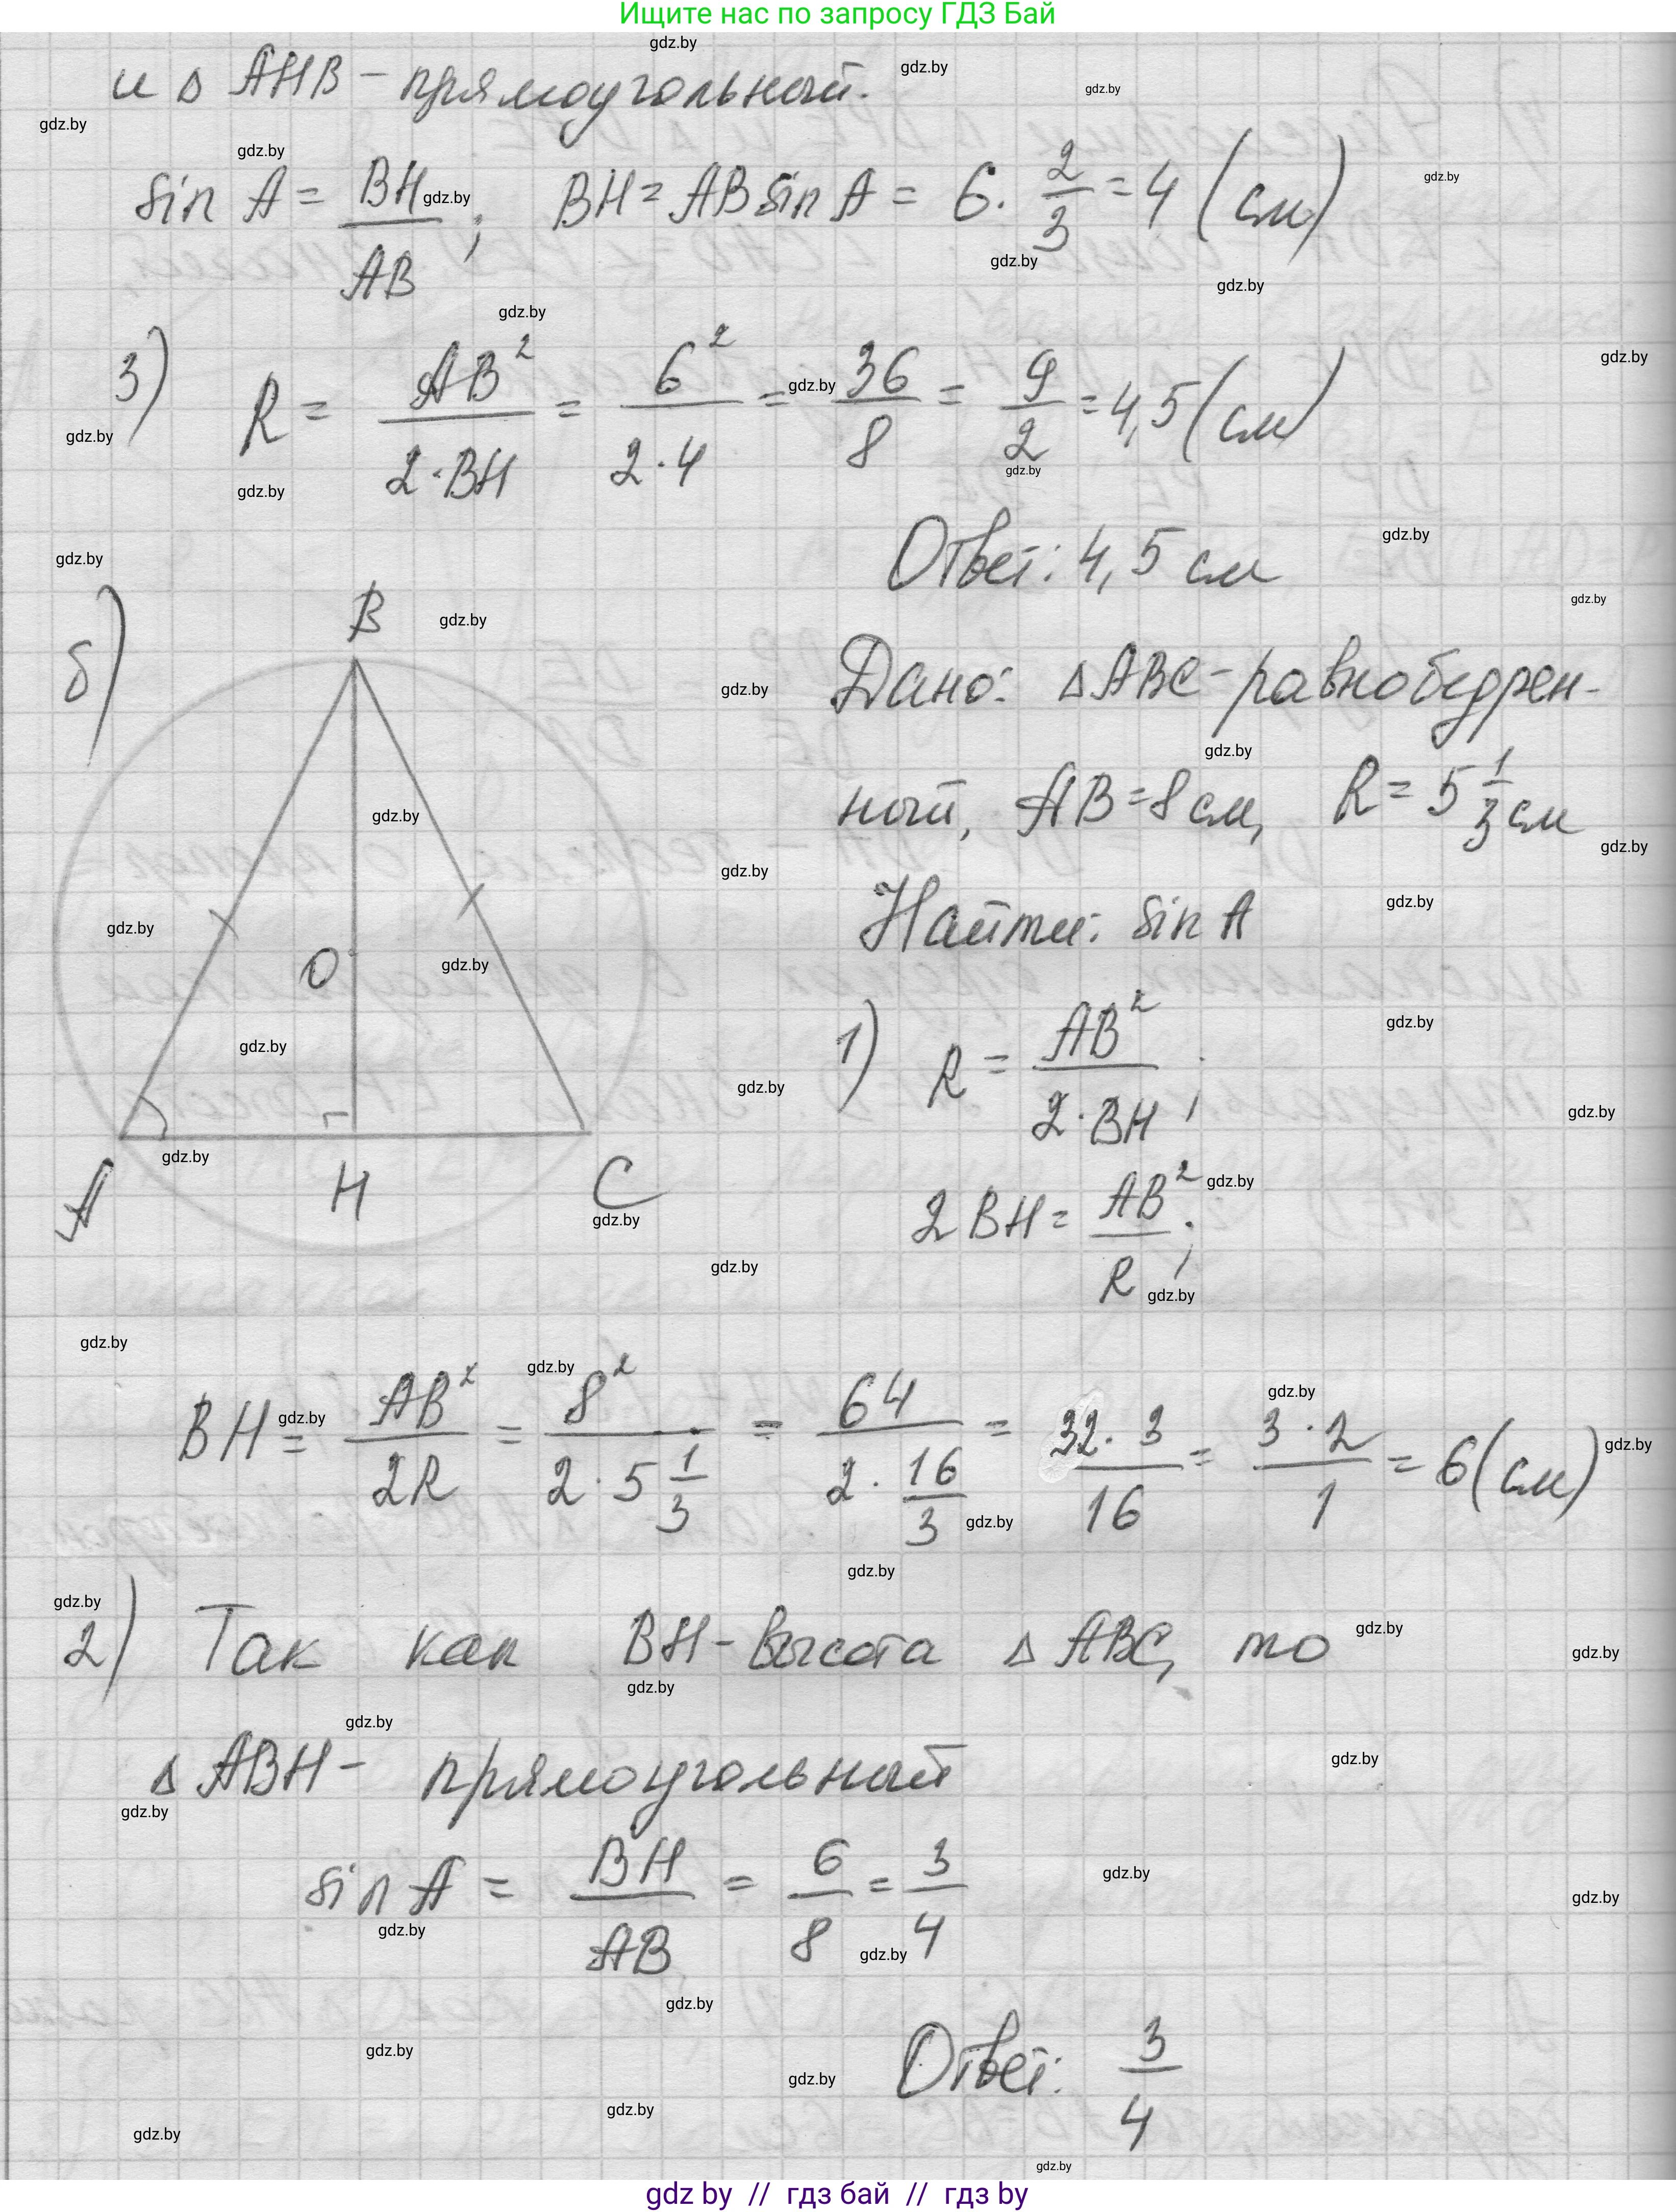 Ищите нас по запросу ГДЗ Бай
и Δ АНВ – прямоугольный.
sin A = BH/AB; BH = AB sin A = 6 · 2/3 = 4 (см)
3) R = AB²/(2·BH) = 6²/(2·4) = 36/8 = 9/2 = 4,5 (см)
Ответ: 4,5 см
б)
B
O
A
H
C
Дано: Δ ABC – равнобедрен-
ный, AB = 8 см, R = 5 1/3 см
Найти: sin A
1) R = AB²/(2·BH);
2BH = AB²/R;
BH = AB²/2R = 8²/(2·5 1/3) = 64/(2·16/3) = 32·3/16 = 3·2/1 = 6 (см)
2) Так как BH – высота Δ ABC, то
Δ ABH – прямоугольный
sin A = BH/AB = 6/8 = 3/4
Ответ: 3/4
gdz by // гдз бай // гдз by